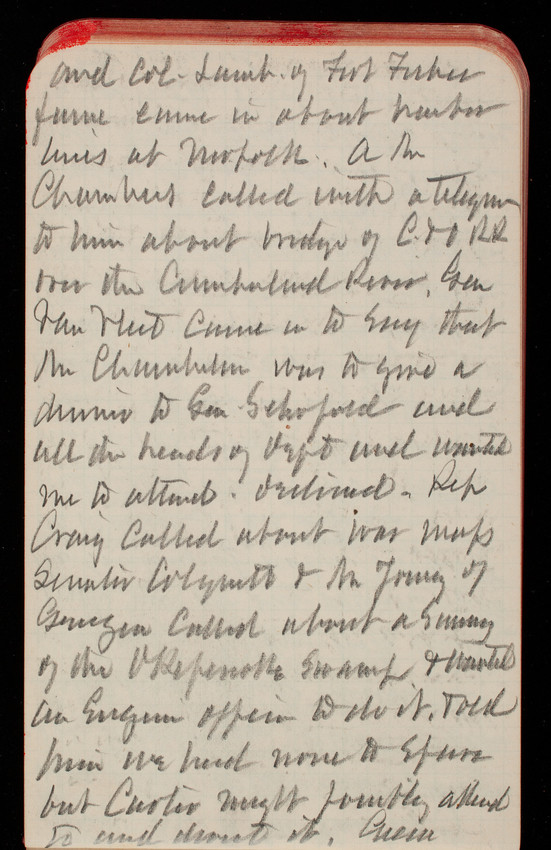 and Col. Lamb. of Fort Fisher
fame came in about harbor
lines at Norfolk. A Mr
Chambers called with a telegram
to him about bridge of C. & O RR
over the Cumberland River. Gen
Van Vliet came in to say that
Mr Chamberlin was to give a
dinner to Gen Schofold and
all the heads of Dept and wanted
me to attend. declined. Rep
Craig called about war maps
Senator Colquitt & Mr Young of
Georgia called about a Survey
of the Okefenokee Swamp & wanted
an Engineer officer to do it. Told
him we had none to Spare
but Carter might possibly attend
to and direct it.